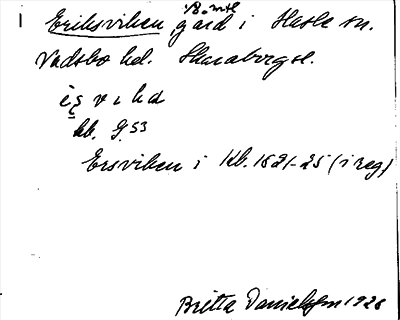 ⅛ mtl
Eriksviken gård i Hasle sn.
Vadsbo hd. Skaraborgs l.
kb. G 53
Ersviken i Kb. 1621-25 (i reg)
Britta Danielsson 1926